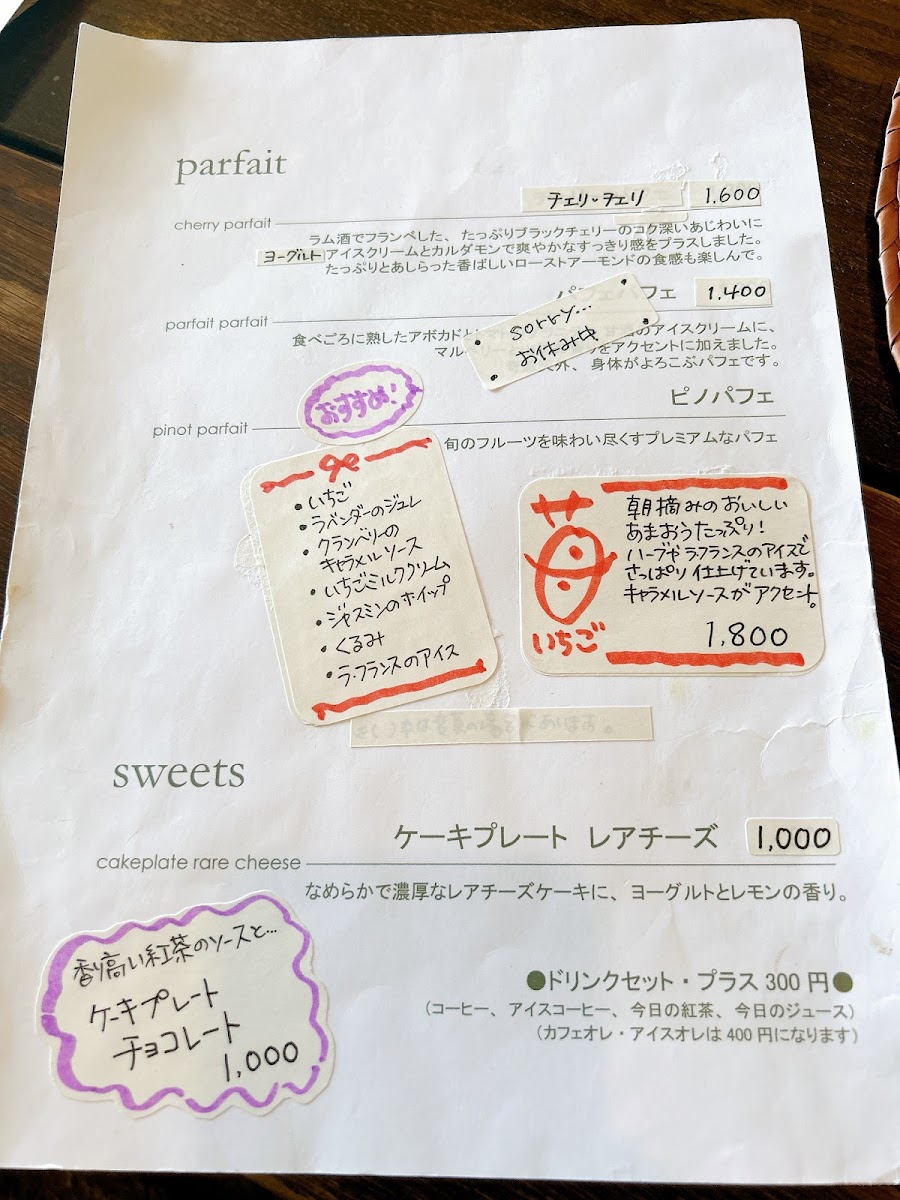 parfait
チェリ・チェリ 1,600
cherry parfait
ラム酒でフランベした、たっぷりブラックチェリーのコク深いあじわいに
ヨーグルトアイスクリームとカルダモンで爽やかなすっきり感をプラスしました。
たっぷりとあしらった香ばしいローストアーモンドの食感も楽しんで。
パフェパフェ 1,400
parfait parfait
sorry...
お休み中
食べごろに熟したアボカドと のアイスクリームに、
マル をアクセントに加えました。
外、身体がよろこぶパフェです。
おすすめ!
ピノパフェ
pinot parfait
旬のフルーツを味わい尽くすプレミアムなパフェ
・いちご
・ラベンダーのジュレ
・クランベリーの
キャラメルソース
・いちごミルククリーム
・ジャスミンのホイップ
・くるみ
・ラ・フランスのアイス
苺
いちご
朝摘みのおいしい
あまおうたっぷり!
ハーブやラフランスのアイスで
さっぱり仕上げています。
キャラメルソースがアクセント。
1,800
sweets
ケーキプレート レアチーズ 1,000
cakeplate rare cheese
なめらかで濃厚なレアチーズケーキに、ヨーグルトとレモンの香り。
香り高い紅茶のソースと...
ケーキプレート
チョコレート
1,000
●ドリンクセット・プラス 300 円●
(コーヒー、アイスコーヒー、今日の紅茶、今日のジュース)
(カフェオレ・アイスオレは 400 円になります)